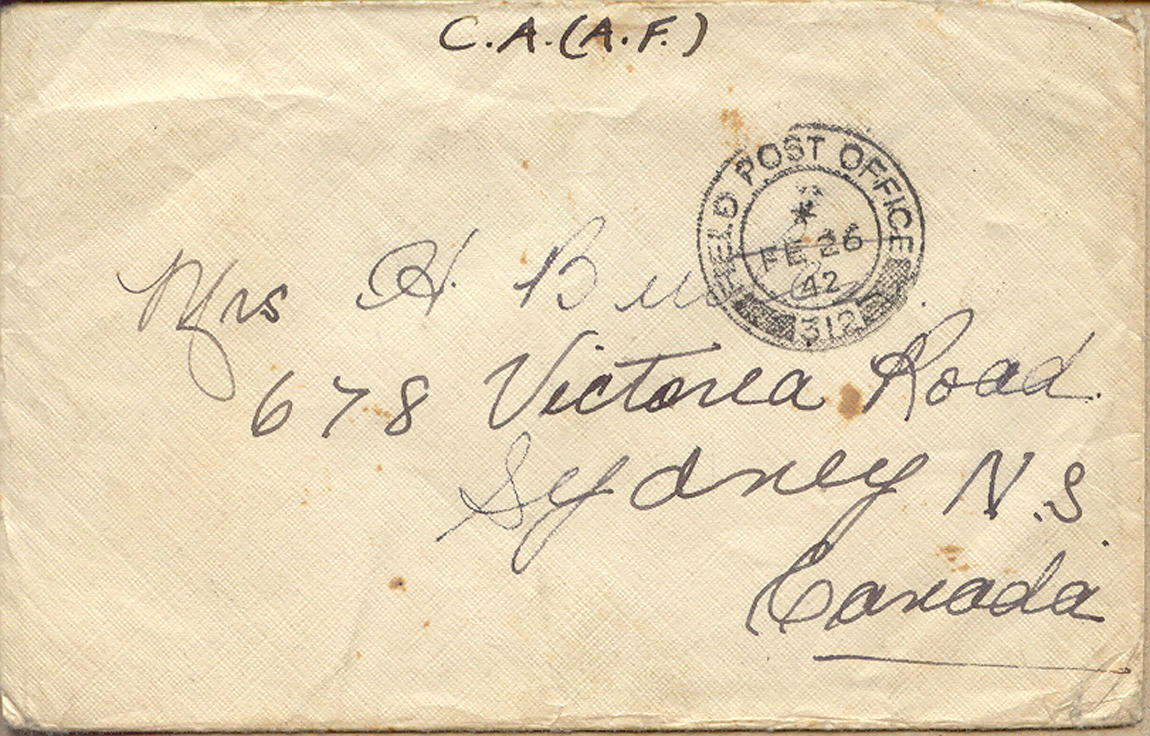 C.A.(A.F.)
FIELD POST OFFICE
FE 26
42
312
Mrs H.
678 Victoria Road.
Sydney N.S
Canada